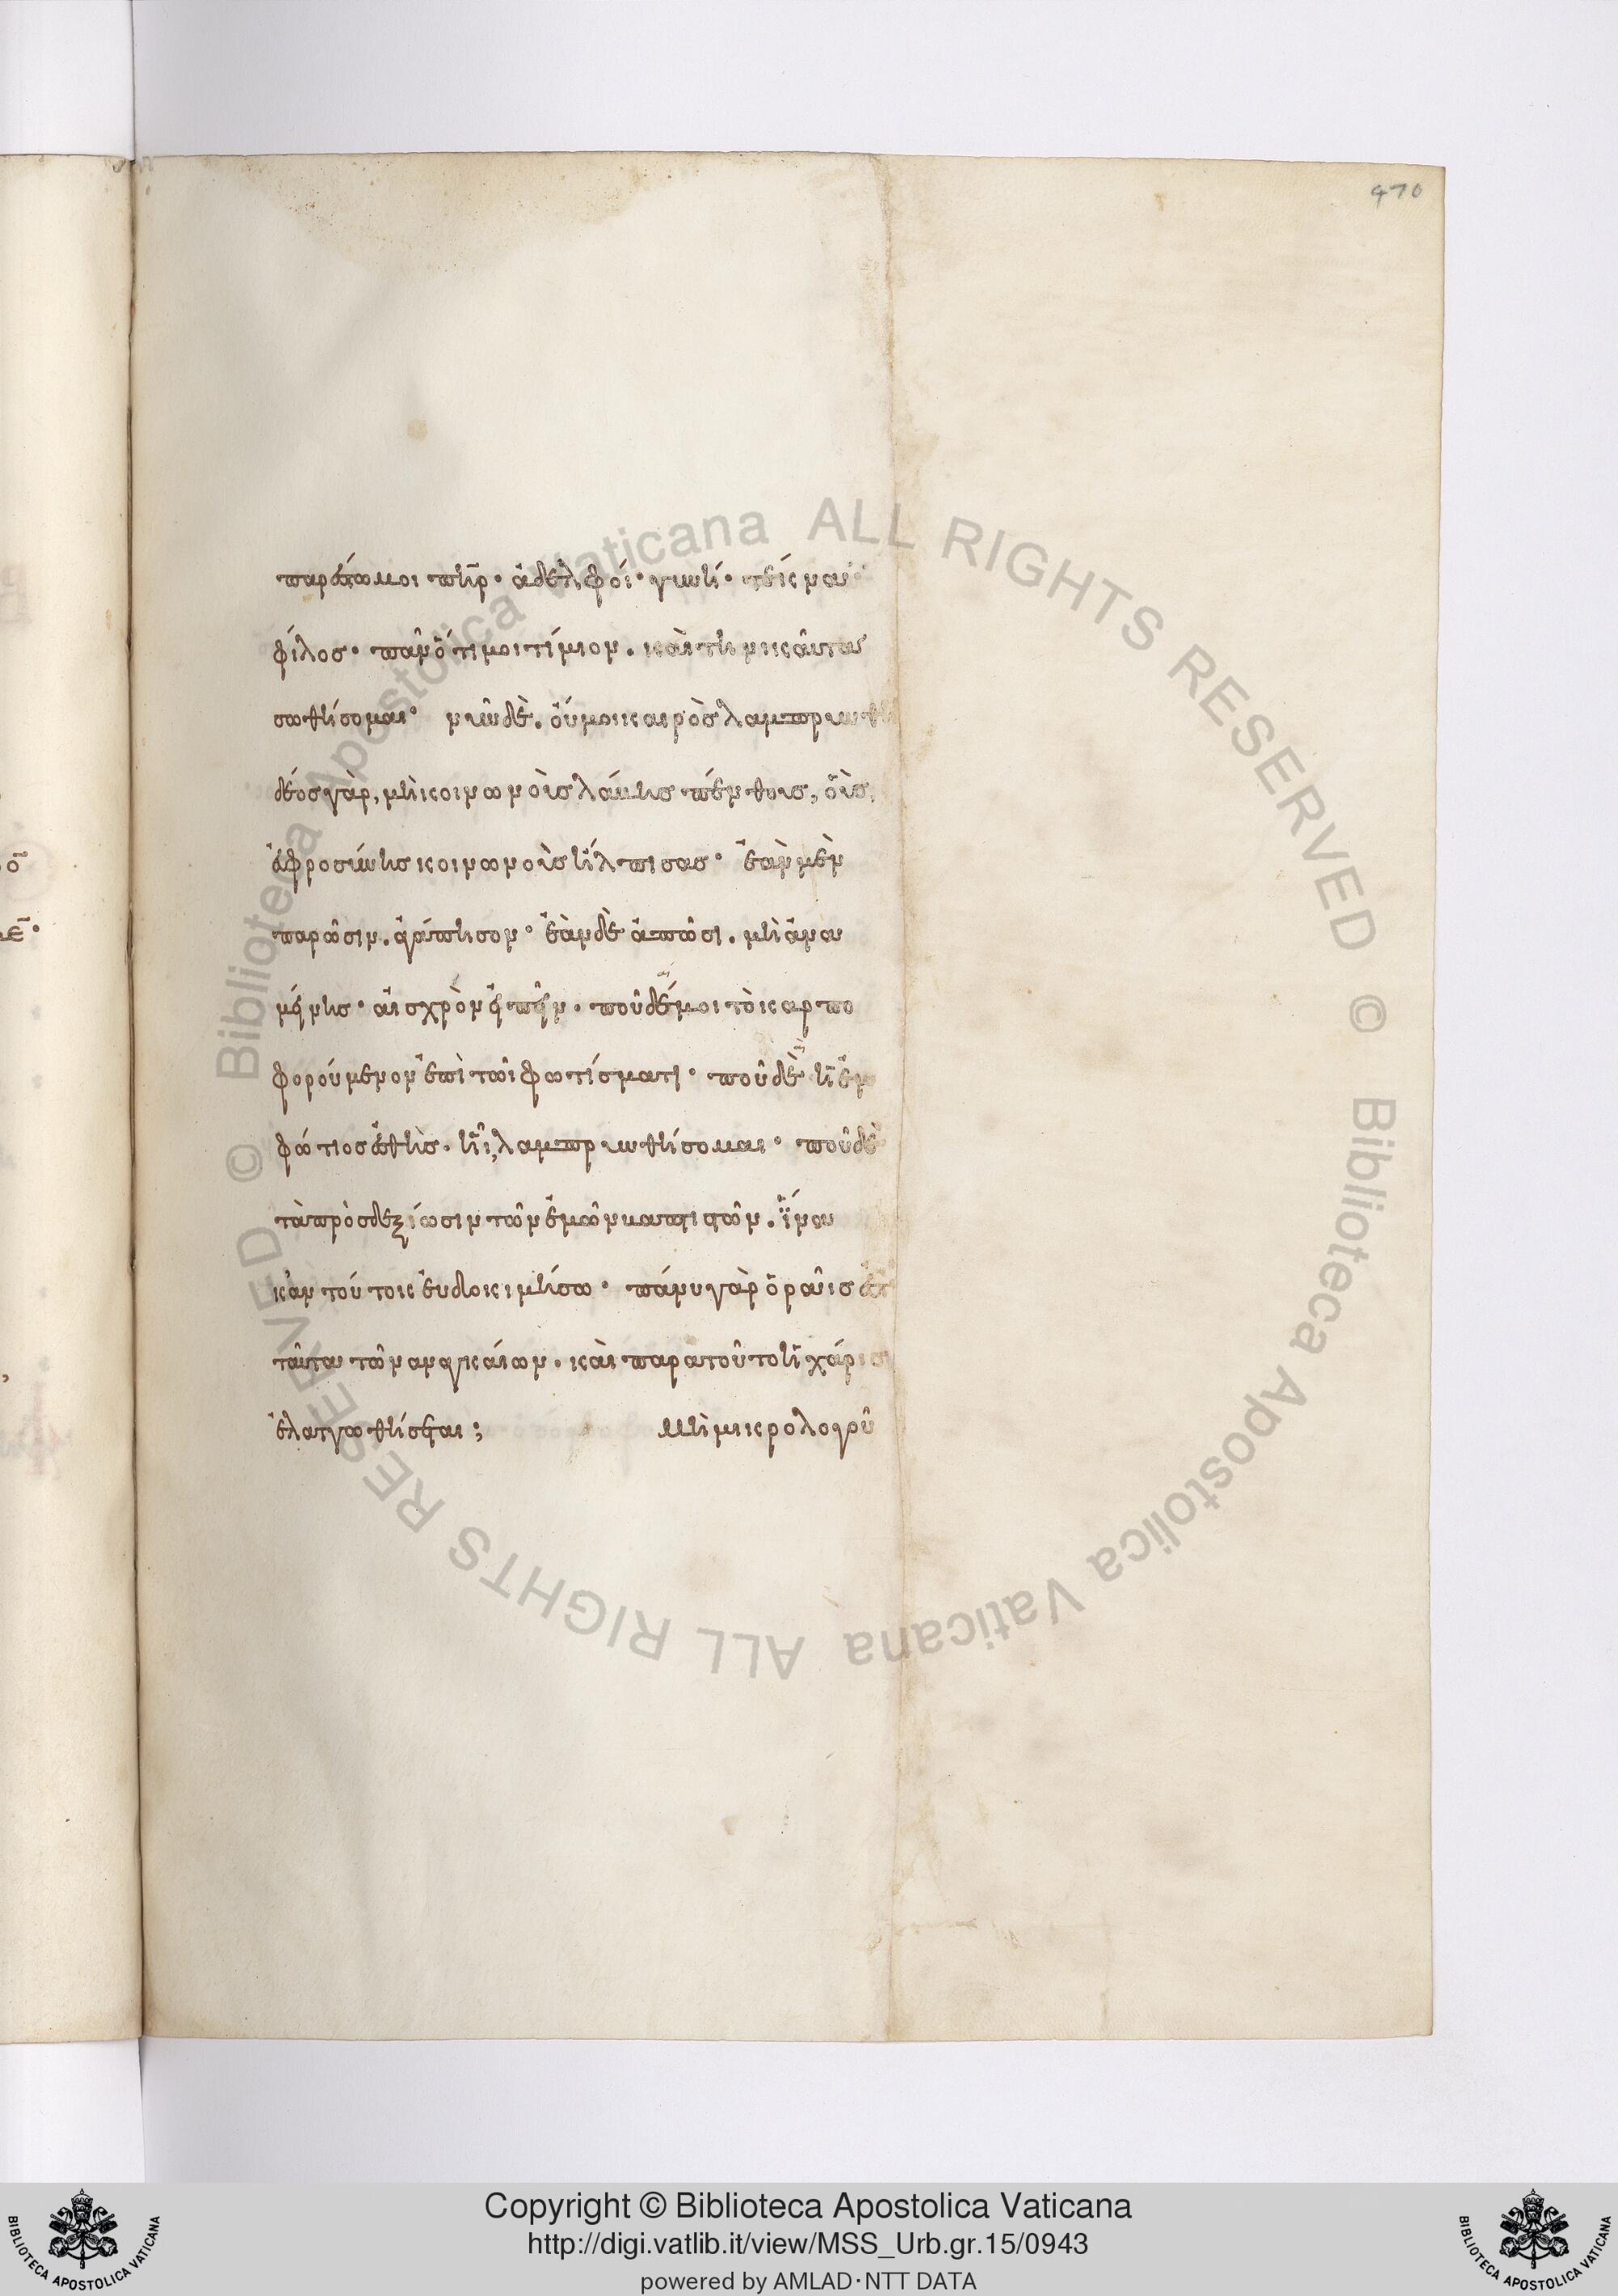 470
παρέστω μοι πηρ· ἀδελφοί· γυνή· τέκνα·
φίλοσ· πᾶν ὅτί μοι τίμιον. καὶ τηνικαῦτα
σωθήσομαι· νῦν δὲ. οὔ μοι καιρὸσ λαμπρυνθῆ
δέοσ γὰρ, μὴ κοινωνοὺσ λάβησ πένθουσ, οὓσ,
εὐφροσύνησ κοινωνοὺσ ἤλπισασ· ἐὰν μὲν
παρῶσιν. ἀγάπησον· ἐὰν δὲ ἀπῶσι. μὴ ἀνα
μένησ· αἰσχρὸν εἰπεῖν. ποῦ δέ μοι τὸ καρπο
φορούμενον ἐπὶ τῶι φωτίσματι· ποῦ δὲ ἡ ἐμ
φώτιοσ ἐσθὴσ. ἧι, λαμπρυνθήσομαι· ποῦ δὲ
τὰ πρὸσ δεξίωσιν τῶν ἐμῶν βαπτιστῶν. ἵνα
κἀν τούτοις εὐδοκιμήσω· πάνυ γὰρ ὁρᾶισ
ταῦτα τῶν αναγκαίων. καὶ παρα τοῦτο ἡ χάρισ
ἐλαττωθήσεται;
Μὴ μικρολογοῦ
Copyright © Biblioteca Apostolica Vaticana
http://digi.vatlib.it/view/MSS_Urb.gr.15/0943
powered by AMLAD·NTT DATA
BIBLIOTECA APOSTOLICA VATICANA
BIBLIOTECA APOSTOLICA VATICANA
© Biblioteca Apostolica Vaticana ALL RIGHTS RESERVED © Biblioteca Apostolica Vaticana ALL RIGHTS RESERVED